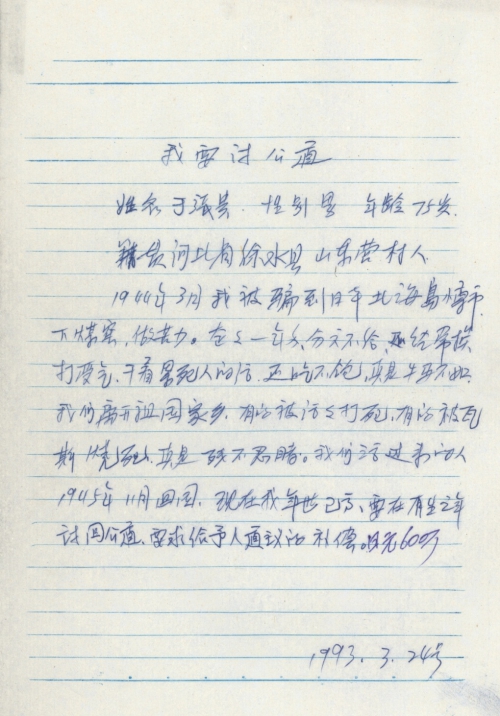 我要讨公道
姓名于 性别男 年龄75岁.
籍贯河北省徐水县 山东营村人
1944年3月我被骗到日本北海岛 市
下煤窑,做苦力。 一年多,分文不给,还经常挨
打受气,干着累死人的活,还吃不饱,真是牛马不如
我们离开祖国家乡,有的被活活打死,有的被瓦
斯烧死,真是 不忍睹。我们活过来的人
1945年11月回国,现在我年世已高,要在有生之年
讨回公道,要求给予人道主义的补偿 600万
1993.3.24号